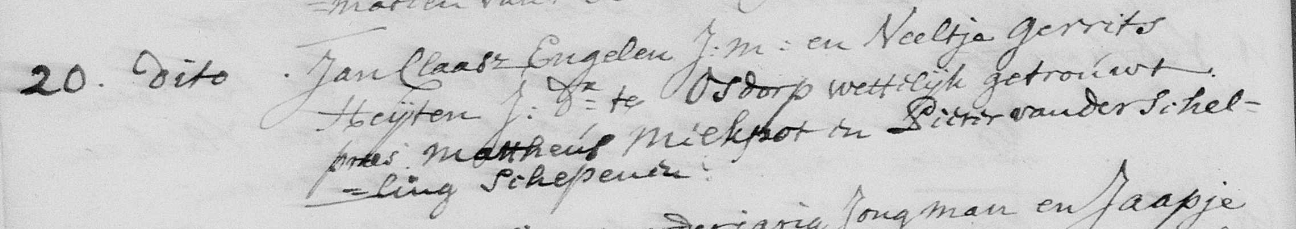 20. Dito. Jan Claasz Engelen J:m: en Neeltje Gerrits
Heijten J: Dr= te Osdorp wettelijk getrouwt.
præs: Mattheus Miekpot en Pieter van der Schel=
=ling Schepenen.
Jongman en Jaapje